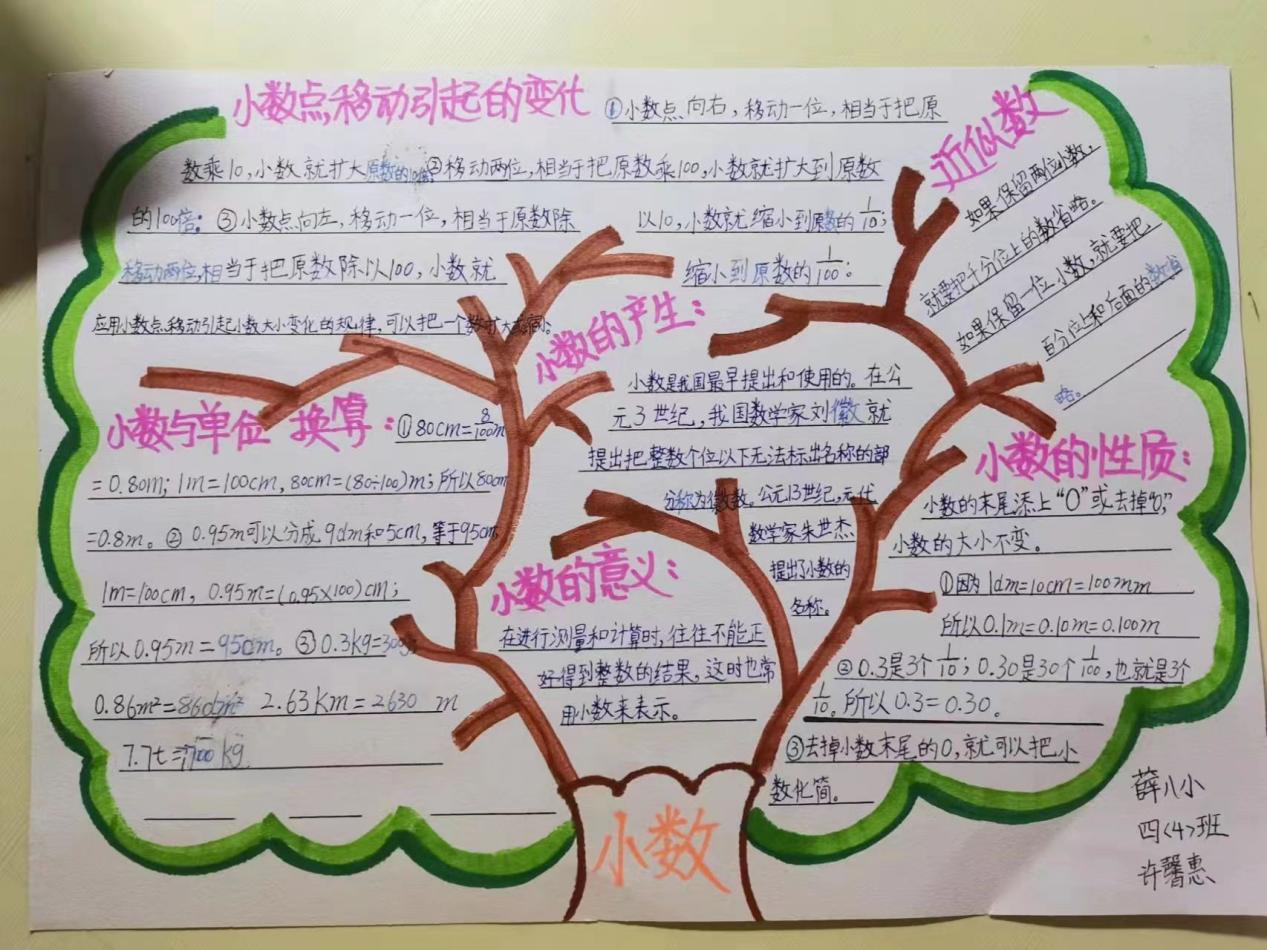 小数点移动引起的变化
①小数点向右,移动一位,相当于把原
数乘10,小数就扩大原数的10倍②移动两位,相当于把原数乘100,小数就扩大到原数
的100倍;③小数点向左,移动一位,相当于原数除
以10,小数就缩小到原数的1/10;
移动两位,相当于把原数除以100,小数就
缩小到原数的1/100;
应用小数点移动引起小数大小变化的规律,可以把一个数扩大或缩
近似数
如果保留两位小数,
就要把千分位上的数省略。
如果保留一位小数,就要把
百分位上和后面的数省
略。
小数的产生:
小数是我国最早提出和使用的。在公
元3世纪,我国数学家刘徽就
提出把整数个位以下无法标出名称的部
分称为徽数。公元13世纪,元代
数学家朱世杰
提出了小数的
名称。
小数与单位换算:
①80cm=8/100m
=0.80m;1m=100cm,80cm=(80÷100)m;所以80cm
=0.8m。②0.95m可以分成9dm和5cm,等于95cm,
1m=100cm,0.95m=(0.95×100)cm;
所以0.95m=950cm。③0.3kg=300g
0.86m²=86dm² 2.63km=2630 m
7.7t=7700kg
小数的意义:
在进行测量和计算时,往往不能正
好得到整数的结果,这时也常
用小数来表示。
小数的性质:
小数的末尾添上“0”或去掉“0”,
小数的大小不变。
①因为1dm=10cm=100mm
所以0.1m=0.10m=0.100m
②0.3是3个1/10;0.30是30个1/100,也就是3个
1/10。所以0.3=0.30。
③去掉小数末尾的0,就可以把小
数化简。
小数
薛八小
四<4>班
许馨惠